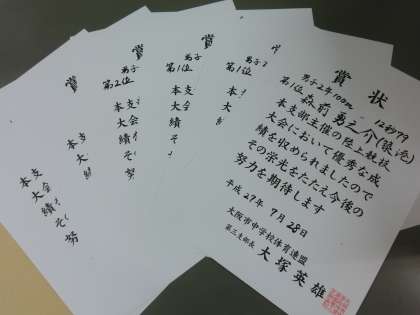 賞状
男子2年100m 12秒79
第1位 森前勇之介
本支部主催の陸上競技
大会において優秀な成
績を収められましたので
その栄光をたたえ今後の
努力を期待します
平成27年7月28日
大阪市中学校体育連盟
第三支部長 大塚英雄
男子
第1位
本支
大
賞
男子
第1位
本支
大会
績
そ
努
賞
男子
第2位
本支
大会
績
そ
努
賞
本支
大
本支
大会
績
そ
努